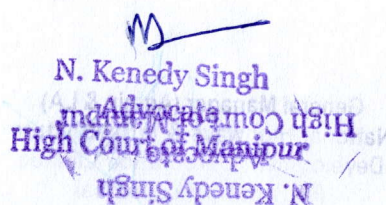 N. Kenedy Singh
Advocate
High Court of Manipur
N. Kenedy Singh
Advocate
High Court of Manipur